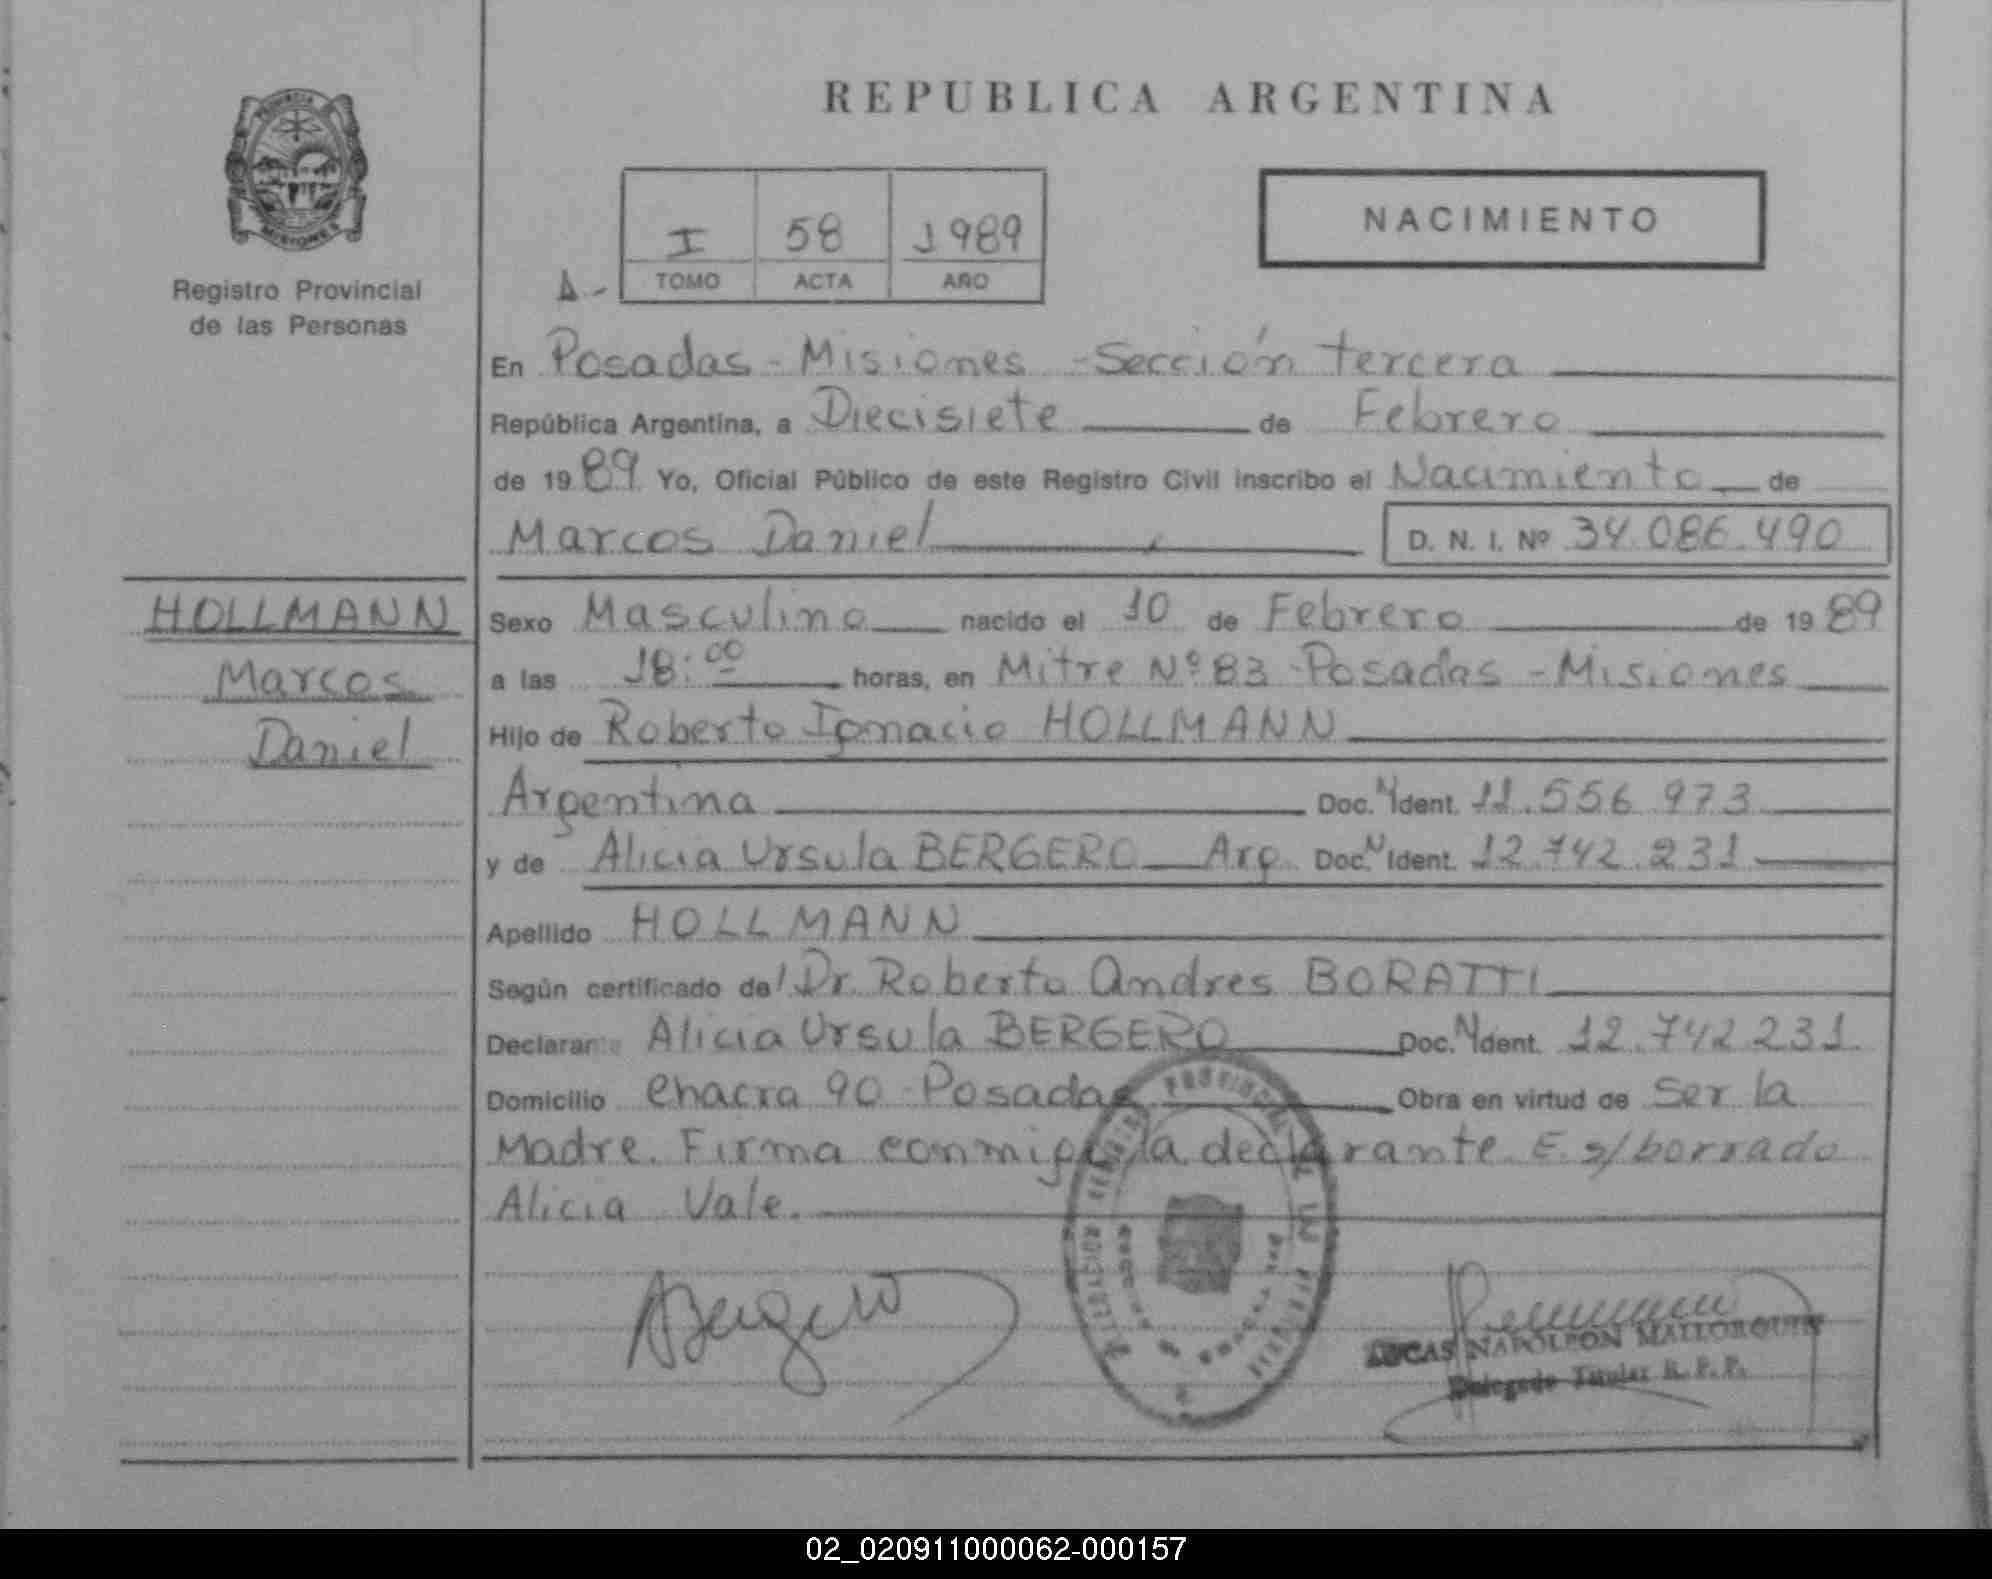 REPUBLICA ARGENTINA
MISIONES
Registro Provincial
de las Personas
I 58 1989
TOMO ACTA AÑO
NACIMIENTO
En Posadas - Misiones - Sección tercera
República Argentina, a Diecisiete de Febrero
de 1989 Yo, Oficial Público de este Registro Civil inscribo el Nacimiento de
Marcos Daniel D. N. I. Nº 34.086.490
HOLLMANN
Marcos
Daniel
Sexo Masculino nacido el 10 de Febrero de 1989
a las 18:00 horas, en Mitre Nº 83 - Posadas - Misiones
Hijo de Roberto Ignacio HOLLMANN
Argentina Doc. N Ident. 11.556.973
y de Alicia Ursula BERGERO Arg. Doc. N Ident. 12.742.231
Apellido HOLLMANN
Según certificado del Dr. Roberto Andres BORATTI
Declarante Alicia Ursula BERGERO Doc. N Ident. 12.742.231
Domicilio Chacra 90 Posadas Obra en virtud de ser la
Madre. Firma conmigo la declarante. E. s/borrado
Alicia Vale.
ABergero
LUCAS NAPOLEON MALLORQUIN
Delegado Titular R. P. P.
02_020911000062-000157